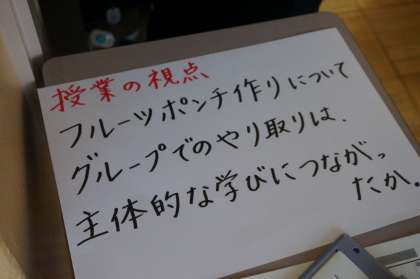 授業の視点
フルーツポンチ作りについて
グループでのやり取りは、
主体的な学びにつながっ
たか。